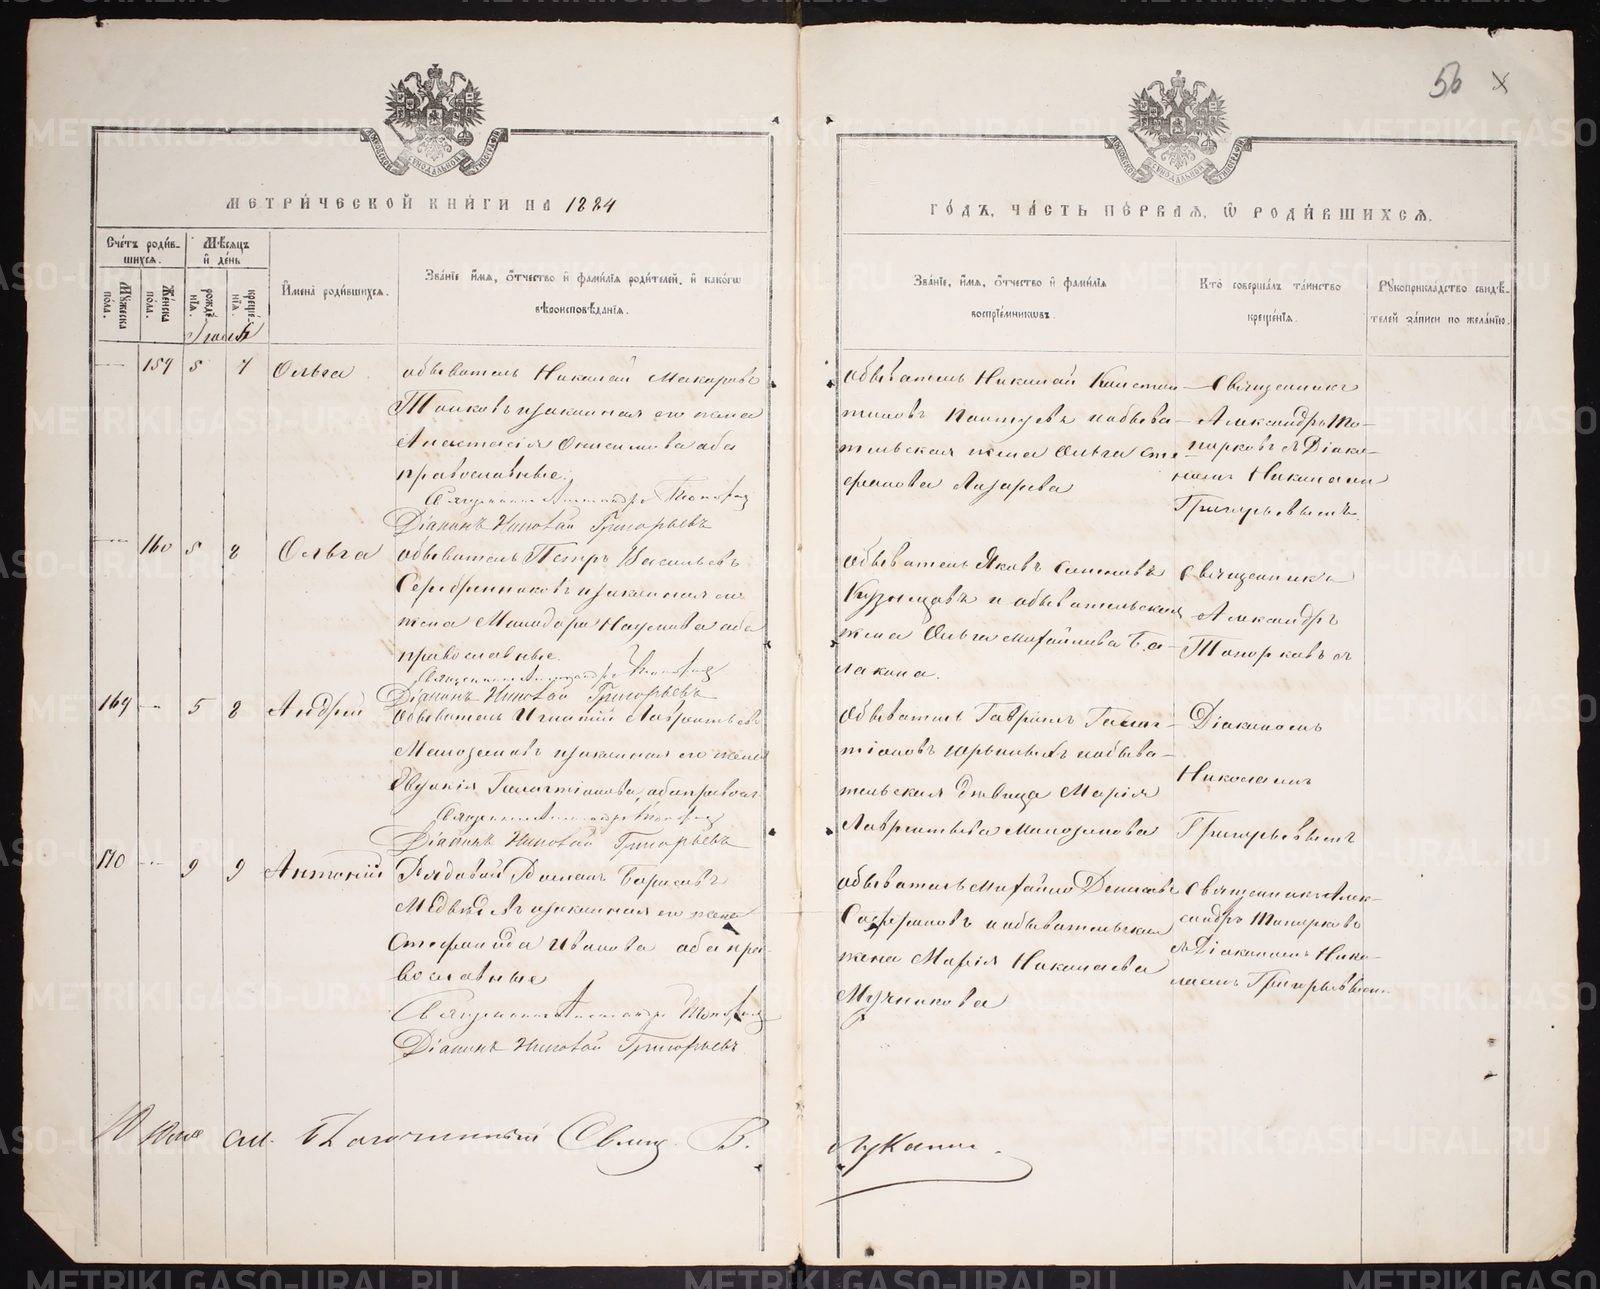 56
МЕТРИ́ЧЕСКОЙ КНИ́ГИ НА 1884
ГО́ДЪ, ЧА́СТЬ ПЕ́РВАЯ, Ѡ РОДИ́ВШИХСЯ.
Сче́тъ роди́в-
шихся.
Мѣ́сяцъ
и де́нь
Му́жеска по́ла.
Же́нска по́ла.
рожде́нїѧ.
креще́нїѧ.
Имена́ роди́вшихся.
Зва́нїе имя, о́тчество и фами́лїѧ роди́телей, и како́гѡ
вѣроисповѣ́данїѧ.
Зва́нїе, имя, о́тчество и фами́лїѧ
воспрїе́мникѡвъ.
Кто̀ соверша́лъ та́инство
креще́нїѧ.
Рукоприкла́дство свидѣ́-
телей за́писи по жела́нїю.
159 5 7 Ольга
обыватель Николай Макаровъ
законная его жена
Анастасія Онисимова оба
православные
Священникъ Александръ Топорковъ
Діаконъ Николай Григорьевъ
обыватель Николай Констан-
тиновъ и обыва-
тельская жена Ольга Сте-
фанова Лазарева
Священникъ
Александръ То-
порковъ съ Діако-
номъ Николаемъ
Григорьевымъ
160 5 8 Ольга
обыватель Петръ Васильевъ
Серебренниковъ и законная его
жена Наумова оба
православные
Священникъ Александръ Топорковъ
Діаконъ Николай Григорьевъ
Обыватель Яковъ
Кузнецовъ и обывательская
жена Ольга Михайлова Ба-
лакина.
Священникъ
Александръ
Топорковъ съ
169 5 8 Андрей
Обыватель Игнатій Лаврентьевъ
Малоземовъ и законная его жена
Евдокія Галактіонова, оба правосл.
Священникъ Александръ Топорковъ
Діаконъ Николай Григорьевъ
Обыватель Гавріилъ Галак-
тіоновъ и обыва-
тельская дѣвица Марія
Лаврентьева Малоземова
Діакономъ
Николаемъ
Григорьевымъ
170 9 9 Антоній
Рядовой Романъ Борисовъ
Медвѣдевъ и законная его жена
Стефанида Иванова оба пра-
вославные
Священникъ Александръ Топорковъ
Діаконъ Николай Григорьевъ
обыватель Михайло Денисовъ
Сафроновъ и обывательская
жена Марія Николаева
Мучникова
Священникъ Алек-
сандръ Топорковъ
съ Діакономъ Нико-
лаемъ Григорьевымъ
Благочинный Свящ. В.
Лукани